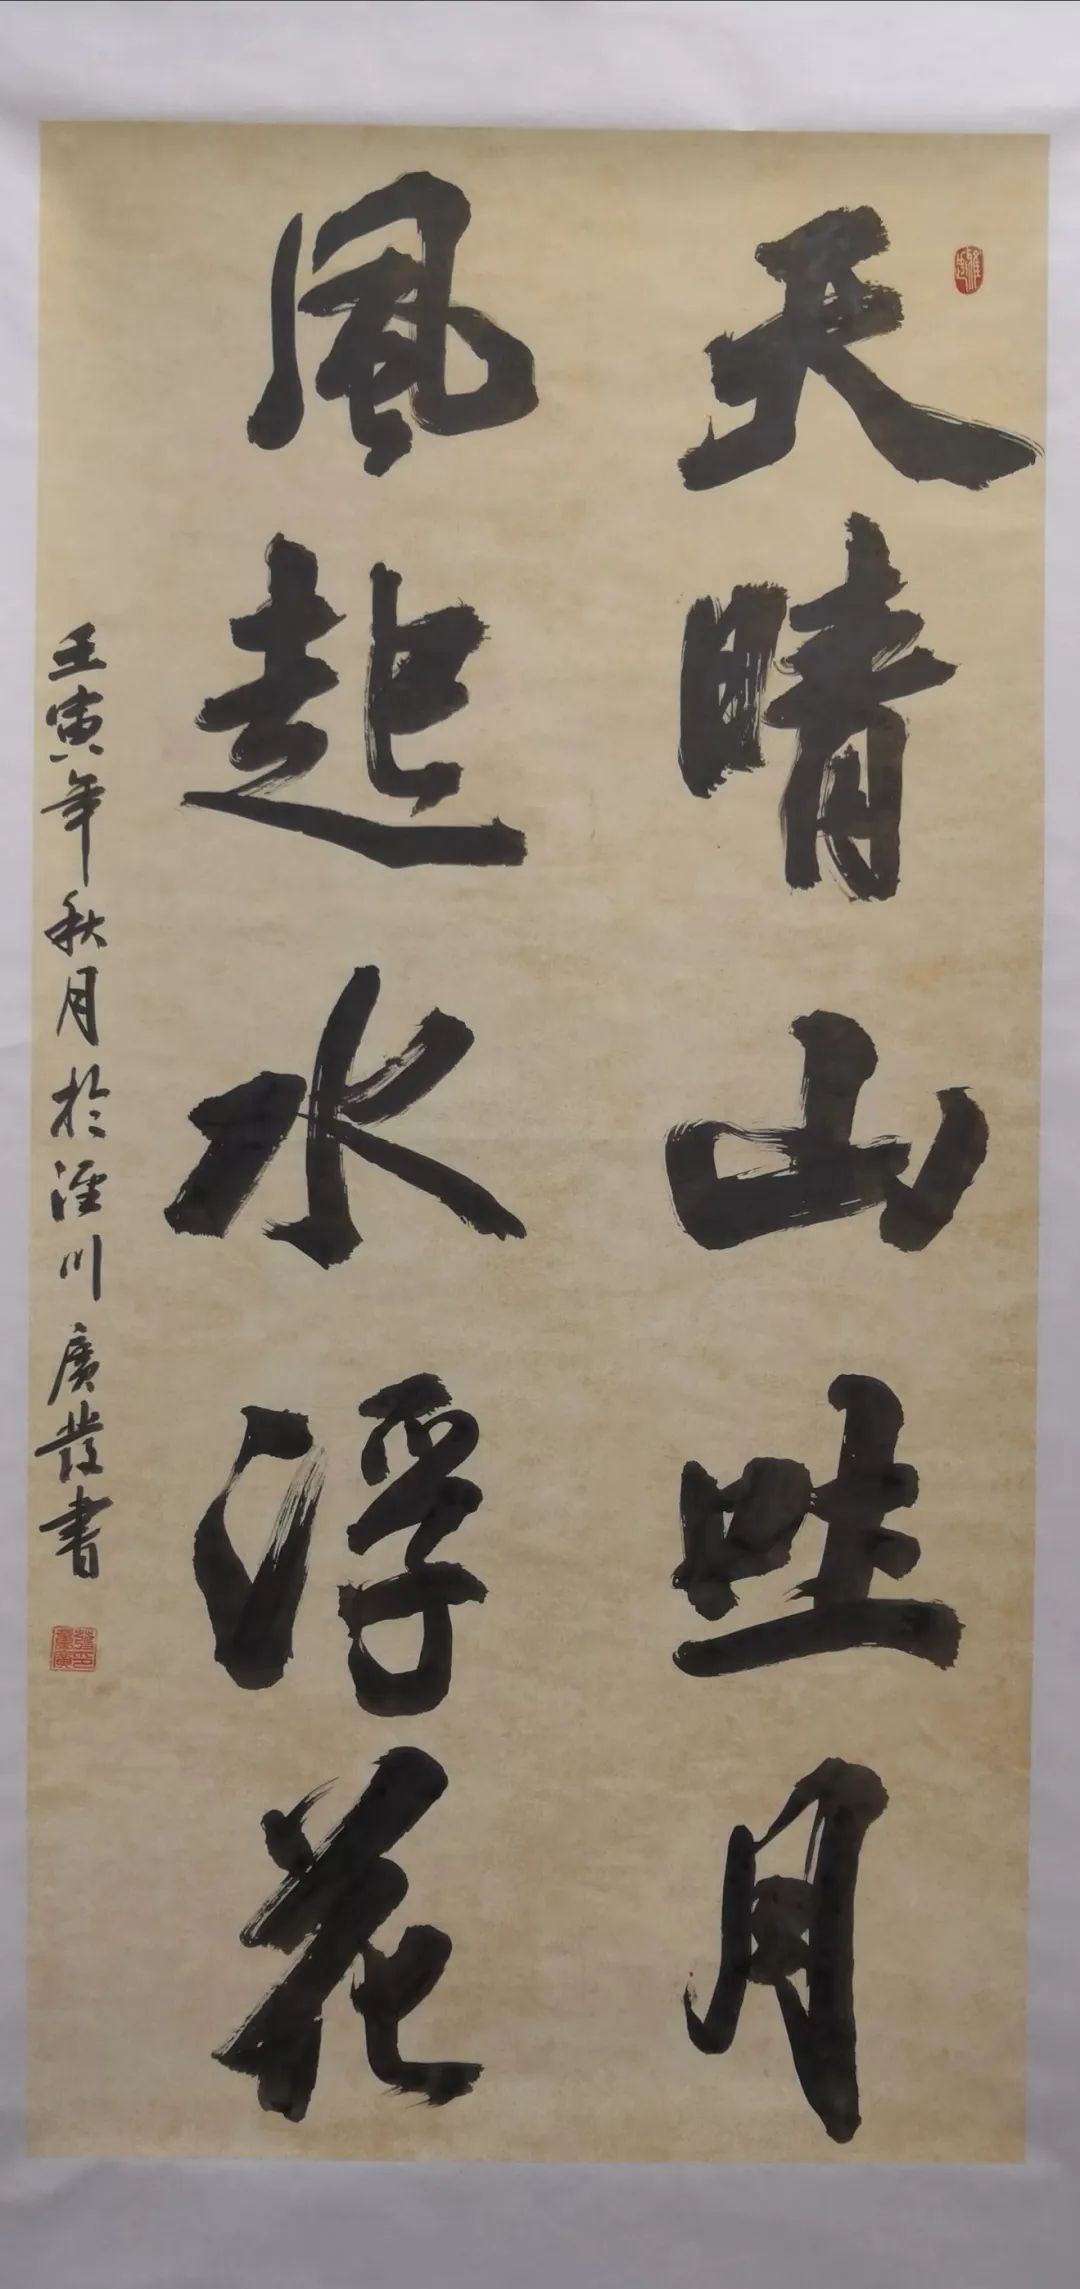 天晴山吐月
風起水浮花
壬寅年秋月於涇川廣發書